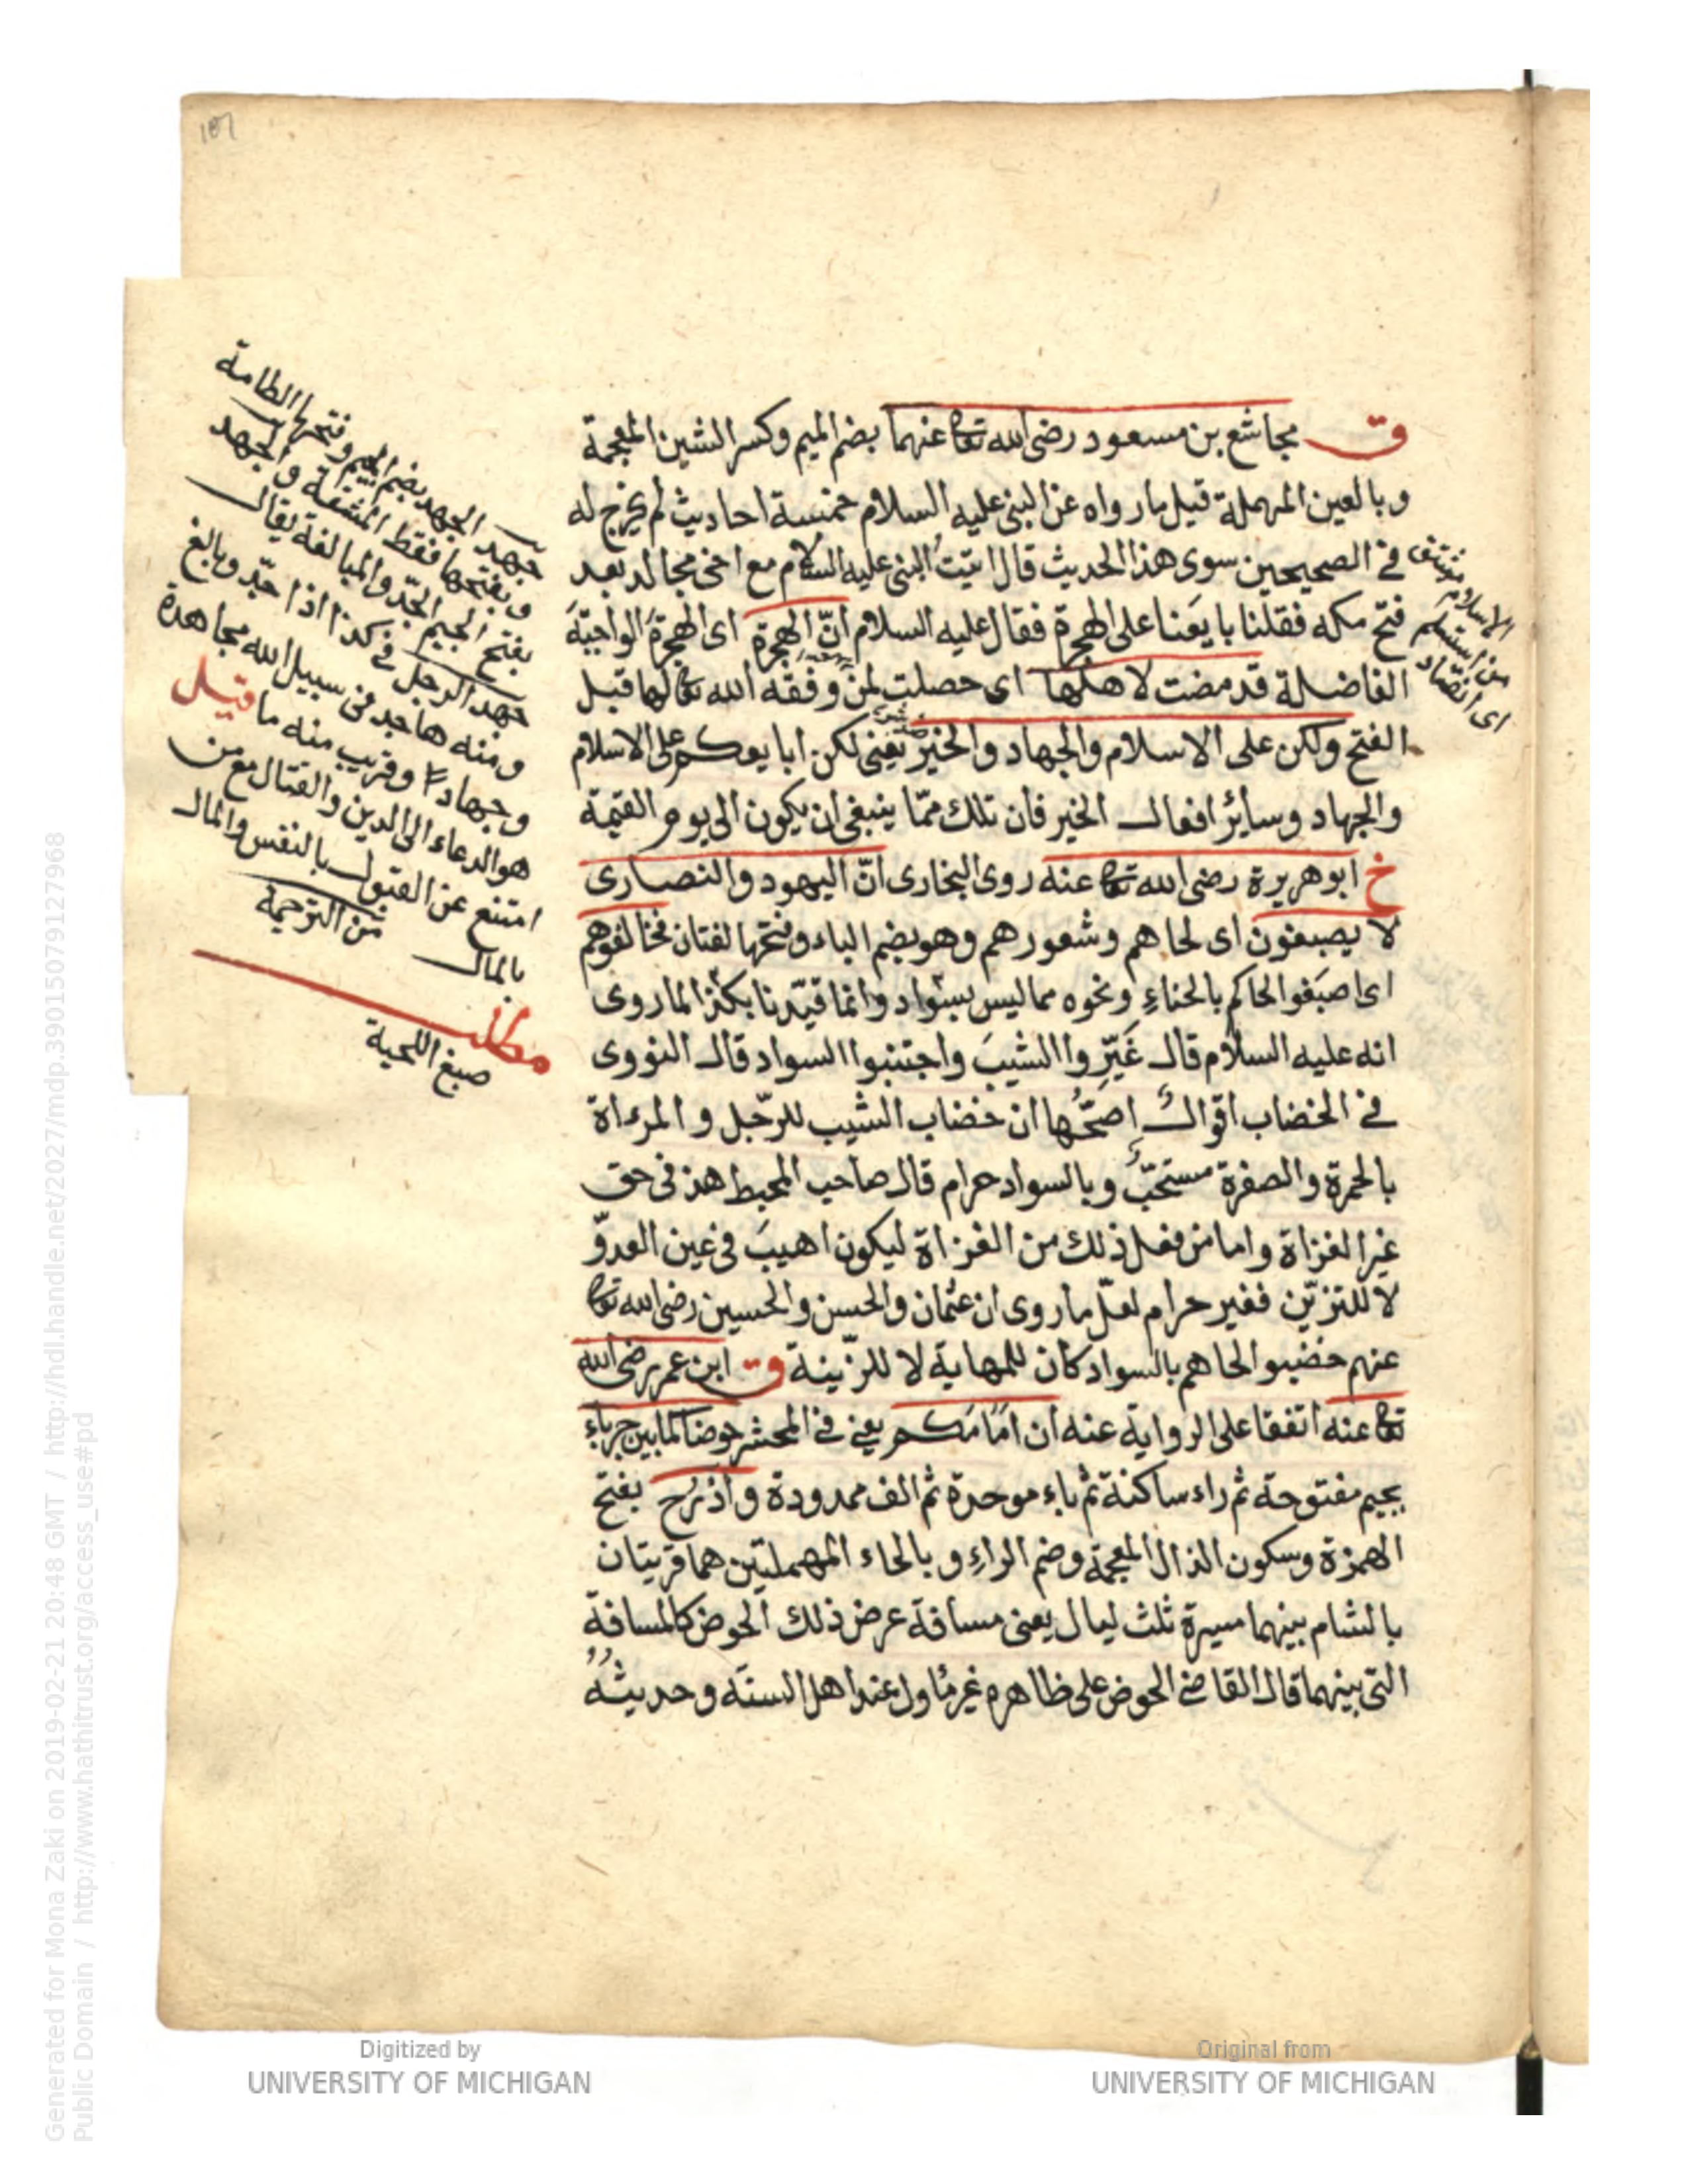 107
ق مجاشع بن مسعود رضى الله تعا عنهما بضم الميم وكسر الشين المعجمة
وبالعين المهملة قيل مارواه عن النبى عليه السلام خمسة احاديث لم يخرج له
فى الصحيحين سوى هذا الحديث قال اتيت النبى عليه السلام مع اخى مجالد بعد
فتح مكه فقلنا بايعنا على الهجرة فقال عليه السلام انّ الهجرة اى الهجرة الواجبة
الفاضلة قد مضت لاهلها اى حصلت لمن وفقه الله تعا لها قبل
الفتح ولكن على الاسلام والجهاد والخير يعنى لكن ابايعوكم على الاسلام
والجهاد وسائر افعال الخير فان تلك ممّا ينبغى ان يكون الى يوم القيمة
خ ابو هريرة رضى الله تعا عنه روى البخارى انّ اليهود والنصارى
لا يصبغون اى لحاهم وشعورهم وهو بضم الباء وفتحها لغتان فخالفوهم
اى اصبغوا لحاكم بالحناء ونحوه مما ليس بسواد وانما قيّدنا بكذا لما روى
انه عليه السلام قال غَيّروا الشيبَ واجتنبوا السواد قال النووى
فى الخضاب اقوال اصحّها ان خضاب الشيب للرّجل و المرءاة
بالحمرة والصفرة مستحبّ وبالسواد حرام قال صاحب المحيط هذ فى حق
غير الغزاة واما من فعل ذلك من الغزاة ليكون اهيبَ فى عين العدوّ
لا للتزيّن فغير حرام لعلّ ما روى ان عثمان والحسن والحسين رضى الله تعا
عنهم خضبوا لحاهم بالسواد كان للمهابة لا للزّينة ق ابن عمر رضى الله
تعا عنه اتفقا على الرواية عنه ان امَامَكم يعنى فى المحشر حوضا كما بين جرباء
بجيم مفتوحة ثم راء ساكنة ثم باء موحدة ثم الف ممدودة واذرُح بفتح
الهمزة وسكون الذال المعجمة وضم الراء و بالحاء المهملتين هما قريتان
بالشام بينهما مسيرة ثلث ليال يعنى مسافة عرض ذلك الحوض كالمسافة
التى بينهما قال القاضى الحوض على ظاهره غير مُاول عند اهل السنّه وحديثُه
الاسلام مشتق
من استسلم
اى انقياد
جهد الجهد بضم الجيم وفتحها الطاقة
وبفتحها فقط المشقة والجهد
بفتح الجيم الجدّ والمبالغة يقال
جهد الرجل فى كذا اذا جدّ وبالغ
ومنه هاجد فى سبيل الله مجاهدة
وجهادا وقريب منه ما قيل
هو الدعاء الى الدين والقتال مع من
امتنع عن القبول بالنفس والمال
بالمال من الترجمة
مطلب
صبغ اللحية
Generated for Mona Zaki on 2019-02-21 20:48 GMT / http://hdl.handle.net/2027/mdp.39015079127968
Public Domain / http://www.hathitrust.org/access_use#pd
Digitized by
UNIVERSITY OF MICHIGAN
Original from
UNIVERSITY OF MICHIGAN